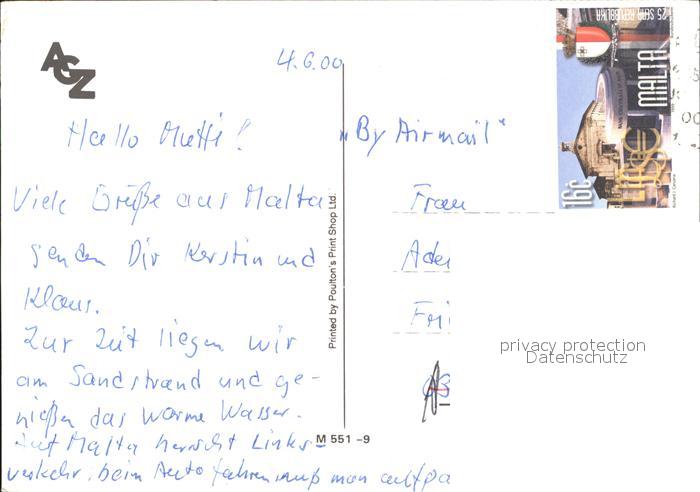 AGZ
4.6.00
Hallo Mutti!
Viele Grüße aus Malta
senden Dir Kerstin und
Klaus.
Zur Zeit liegen wir
am Sandstrand und ge-
nießen das warme Wasser.
Auf Malta herrscht Links-
verkehr, beim Auto fahren muß man aufpa
Printed by Poulton's Print Shop Ltd.
M 551-9
"By Airmail"
Frau
Adel
Fri
25 SENA REPUBBLIKA
MALTA
16c
privacy protection
Datenschutz